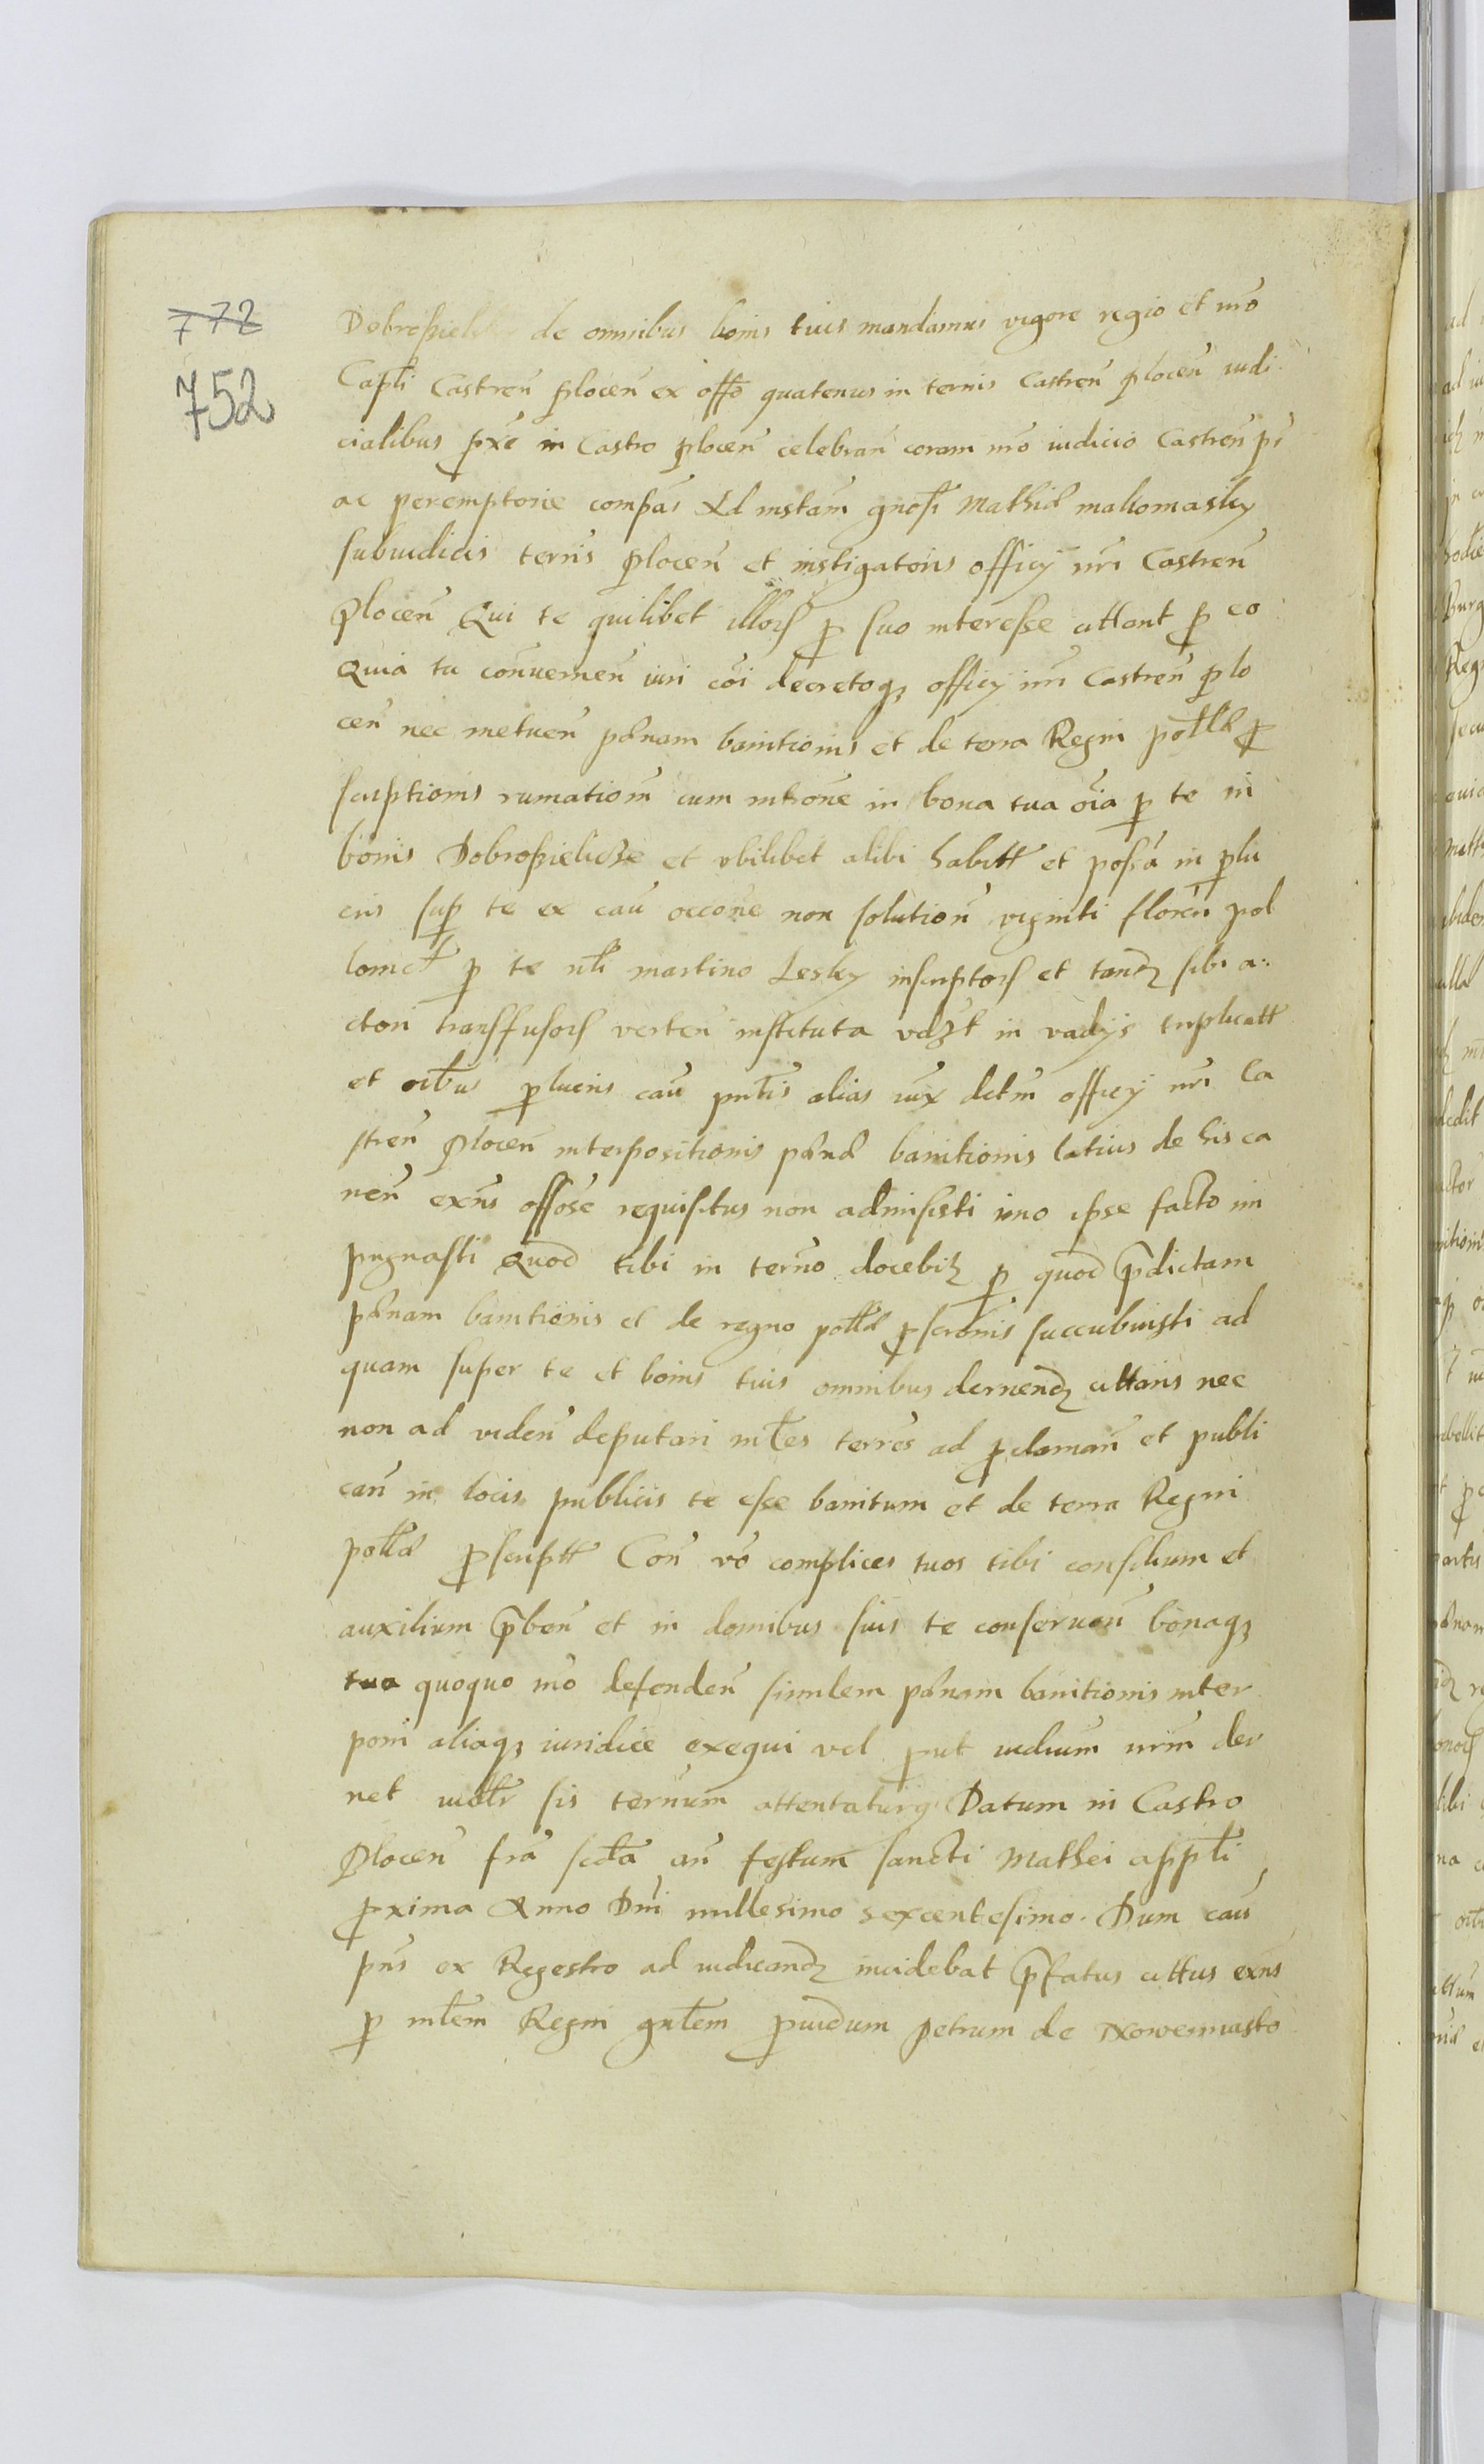 772
752
Dobrosiel de omnibus bonis tuis mandamus vigore regio et nrō
Capłi Castreñ plocen̄ ex offō quatenus in terris Castreñ plocen̄ iudi
cialibus pxē in Castro plocen̄ celebrañ coram nrō iudicio Castreñ pr
ac peremptorie compās Ad instañ gnosi Mathiæ malomasky
subiudicis terris plocen̄ et instigatoris officÿ nr̄i Castreñ
plocen̄ Qui te quilibet illoꝝ ꝓ suo interesse cittant ꝓ eo
Quia tu conueniēn iuri cōi decretoqꝫ officÿ nr̄i Castreñ plo
cen̄ nec metueñ pœnam banitionis et de terra Regni połłæ ꝓ
scriptionis rumationē cum intrōne in bona tua oīa ꝑ te in
bonis Dobrosielicze et vbilibet alibi habitt et possā in plu
cris suꝑ te ex caū occōne non solutioñ viginti floreñ pol
lonict ꝑ te nłi martino Lesky inscriptoꝝ et tandꝫ sibi a:
ctori transfusoꝝ verteñ instituta vdzt in vadÿs triplicatt
et oībus plucris caū pntīs alias iux dctm̄ officÿ nr̄i Ca
streñ plocen̄ interpositionis pœnæ banitionis latius de his ca
neñ exn̄s offōse requisitus non admisisti imo ipse facto im
pugnasti Quod tibi in termō docebitꝛ ꝓ quod p̄dictam
pœnam banitionis et de regno połłæ ꝓscrōnis succubuisti ad
quam super te et bonis tuis omnibus dernendꝫ cittaris nec
non ad videñ deputari młes terrēs ad ꝓclamañ et publi
cañ in locis publicis te esse banitum et de terra Regni
połłæ ꝓscriptt Coñ vō complices tuos tibi consilium et
auxilium p̄beñ et in domibus suis te conseruañ bonaqꝫ
tua quoquo mō defendeñ similem pœnam banitionis inter
poni aliaqꝫ iuridice exequi vel ꝓut iudium nr̄m der
net iudłr sis terīnum attentaturꝰ Datum in Castro
Plocen̄ fr̄a sctā añ festum sancti Mathei appłi
ꝓxima Anno Dnī millesimo sexcentesimo. Dum caū
pn̄s ex Regestro ad iudicandꝫ incidebat p̄fatus cittus exn̄s
ꝑ młem Regni gnłem ꝓuidum petrum de Nowemiasto